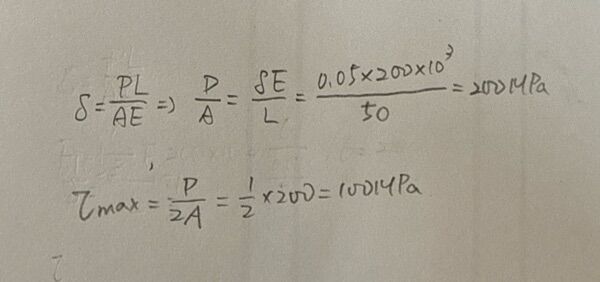 δ = PL/AE ⇒ P/A = δE/L = 0.05×200×10³/50 = 200MPa
τmax = P/2A = 1/2 × 200 = 100MPa